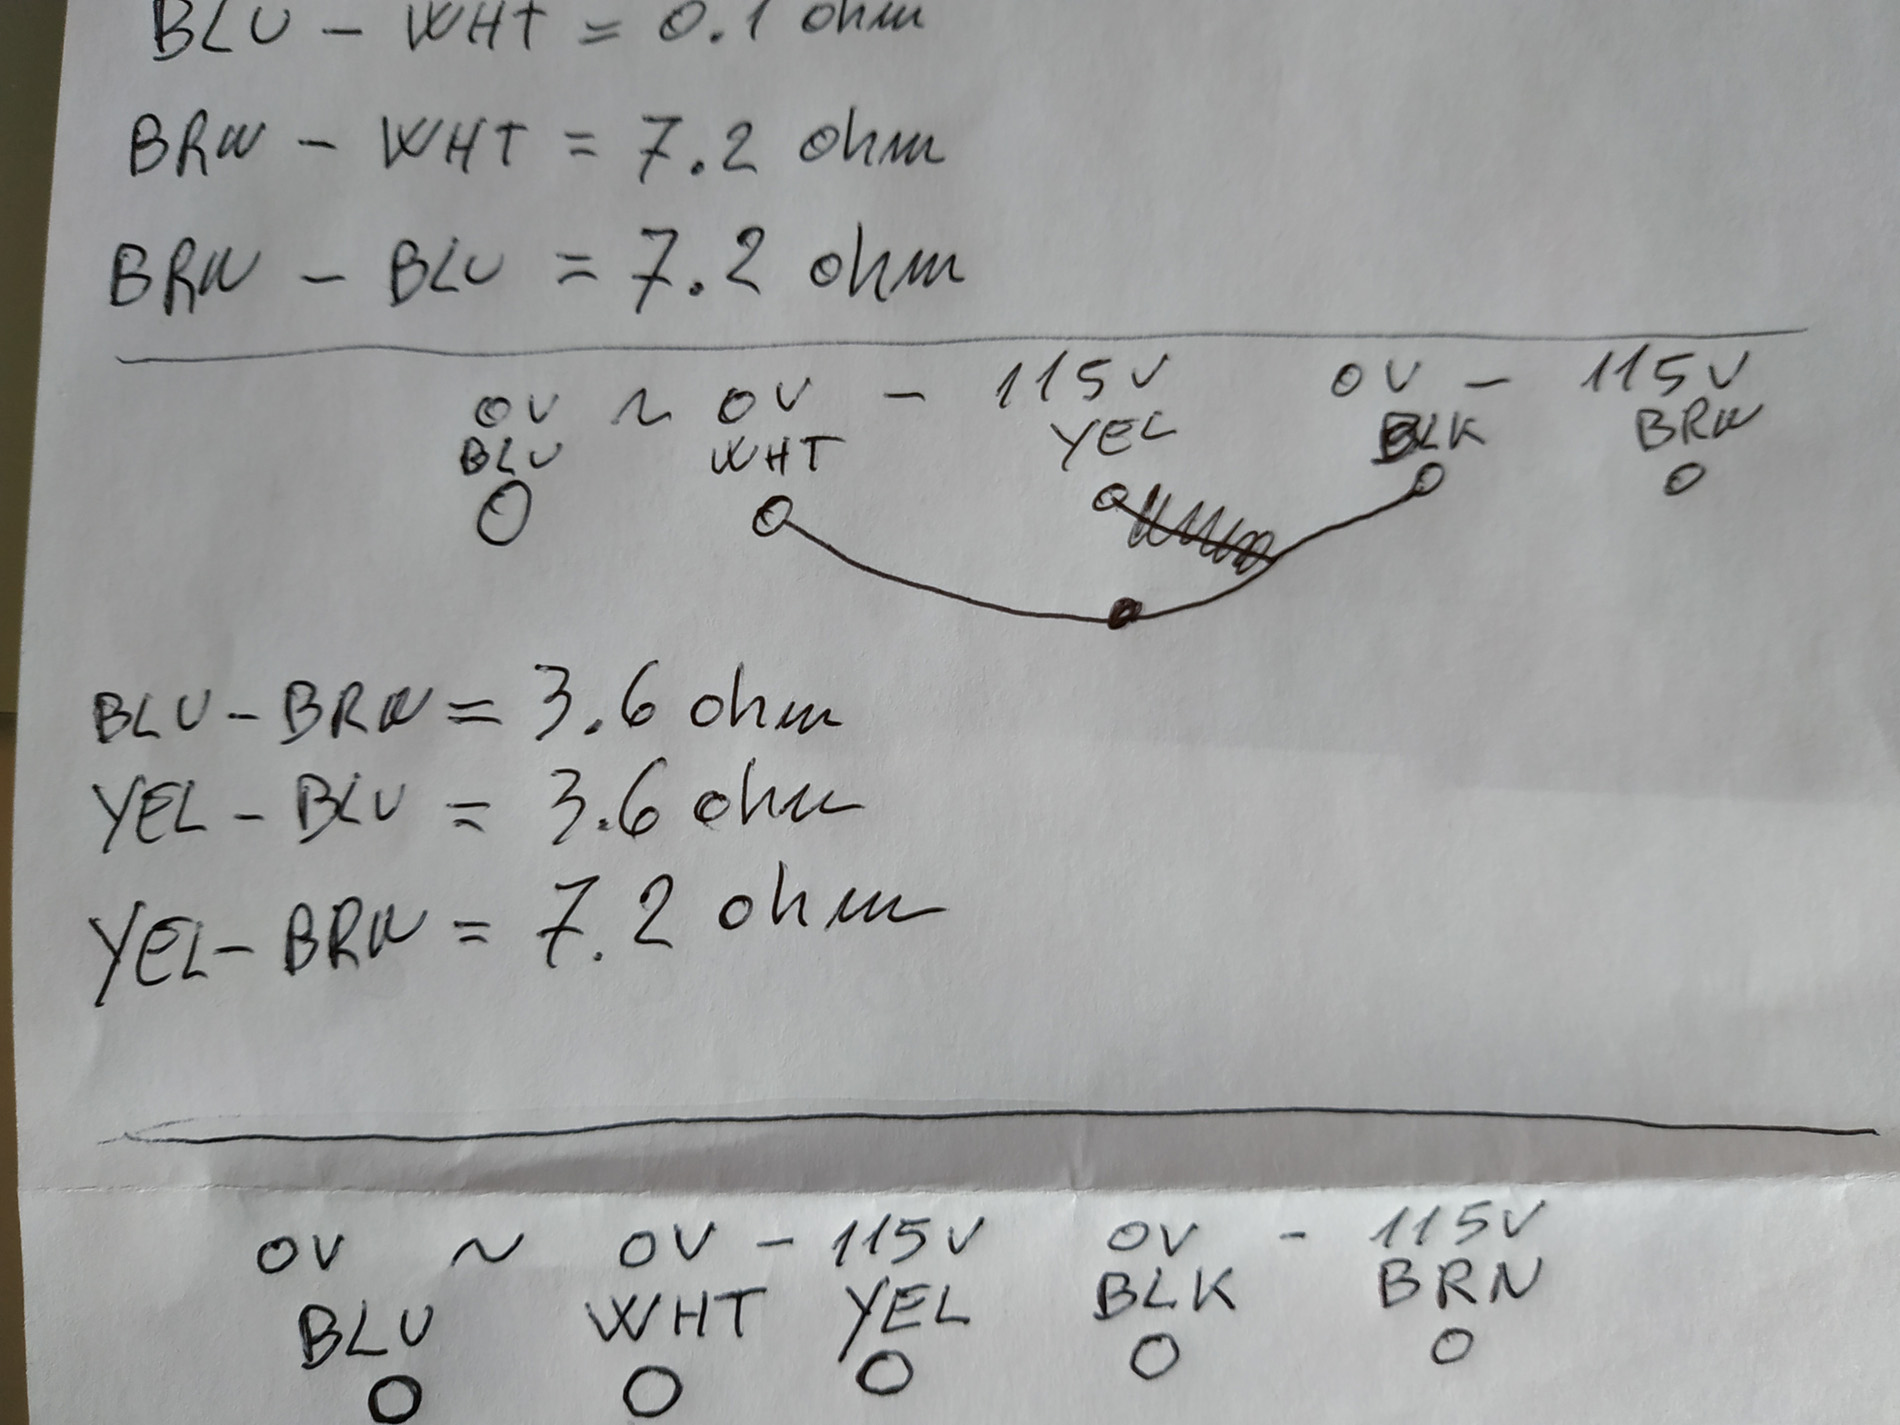 BLU - WHT = 0.1 ohm
BRN - WHT = 7.2 ohm
BRN - BLU = 7.2 ohm
0V ~ 0V - 115V 0V - 115V
BLU WHT YEL BLK BRN
BLU - BRN = 3.6 ohm
YEL - BLU = 3.6 ohm
YEL - BRN = 7.2 ohm
0V ~ 0V - 115V 0V - 115V
BLU WHT YEL BLK BRN